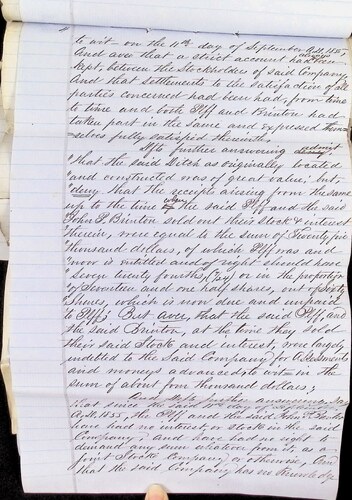 to wit on the 11th day of September A.D. 1857
And aver that a strict account had always been
kept, between the Stockholders of said Company,
And that settlements to the satisfaction of all
parties concerned had been had, from time
to time and both Plff and Brinton had
taken part in the same and expressed them-
selves fully satisfied therewith.
Defts further answering admit
"that the said Ditch as originally located
"and constructed was of great value; but,
"deny that the receipts arising from the same
up to the time when the said Plff and the said
John P. Brinton sold out their Stock & interest
therein, were equal to the sum of Twenty five
thousand dollars, of which Plff was and
"now is entitled and of right should have
"seven twenty fourths, (7/24) or in the proportion
of Seventeen and one half shares, out of Sixty
Shares, which is now due and unpaid
to Plff; But aver, that the said Plff, and
the said Brinton, at the time they sold
their said Stock and interest, were largely
indebted to the said Company for Assessments
and moneys advanced to wit in the
sum of about four thousand dollars;
And Defts further answering, say
that since the
A.D. 1855, the Plff and the said
have had no interest or stock in the said
Company, and have had no right to
demand any sum whatever from it, as a
Joint Stock Company or otherwise,
that the said Company has no knowledge